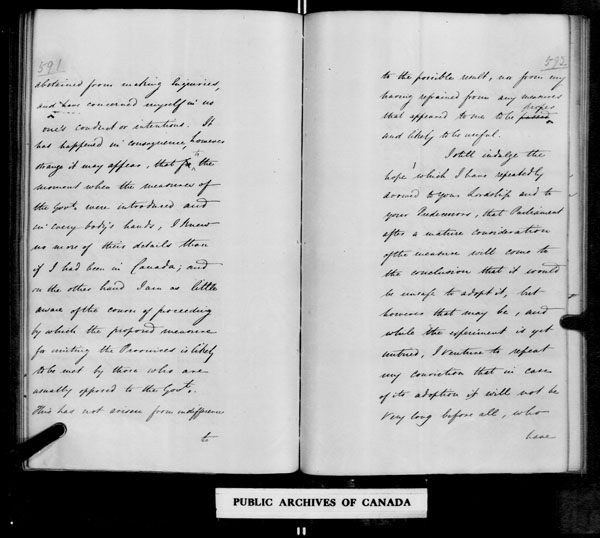 591
abstained from making Inquiries,
and have concerned myself in no
one's conduct or intentions. It
has happened in consequence, however
strange it may appear, that to the
moment when the measures of
the Govt. were introduced and
in every body's hands, I knew
no more of their details than
if I had been in Canada; and
on the other hand I am as little
aware of the course of proceeding
by which the proposed measure
for uniting the Provinces is likely
to be met by those who are
usually opposed to the Govt.
This has not arisen from indifference
to
592
to the possible result, nor from my
having refrained from any measures
that appeared to me to be proper
and likely to be useful.
I still indulge the
hope which I have repeatedly
avowed to your Lordship and to
your Predecessors, that Parliament
after a mature consideration
of the measure will come to
the conclusion that it would
be unsafe to adopt it, but
however that may be, and
while the experiment is yet
untried, I venture to repeat
my conviction that in case
of its adoption it will not be
very long before all, who
have
PUBLIC ARCHIVES OF CANADA